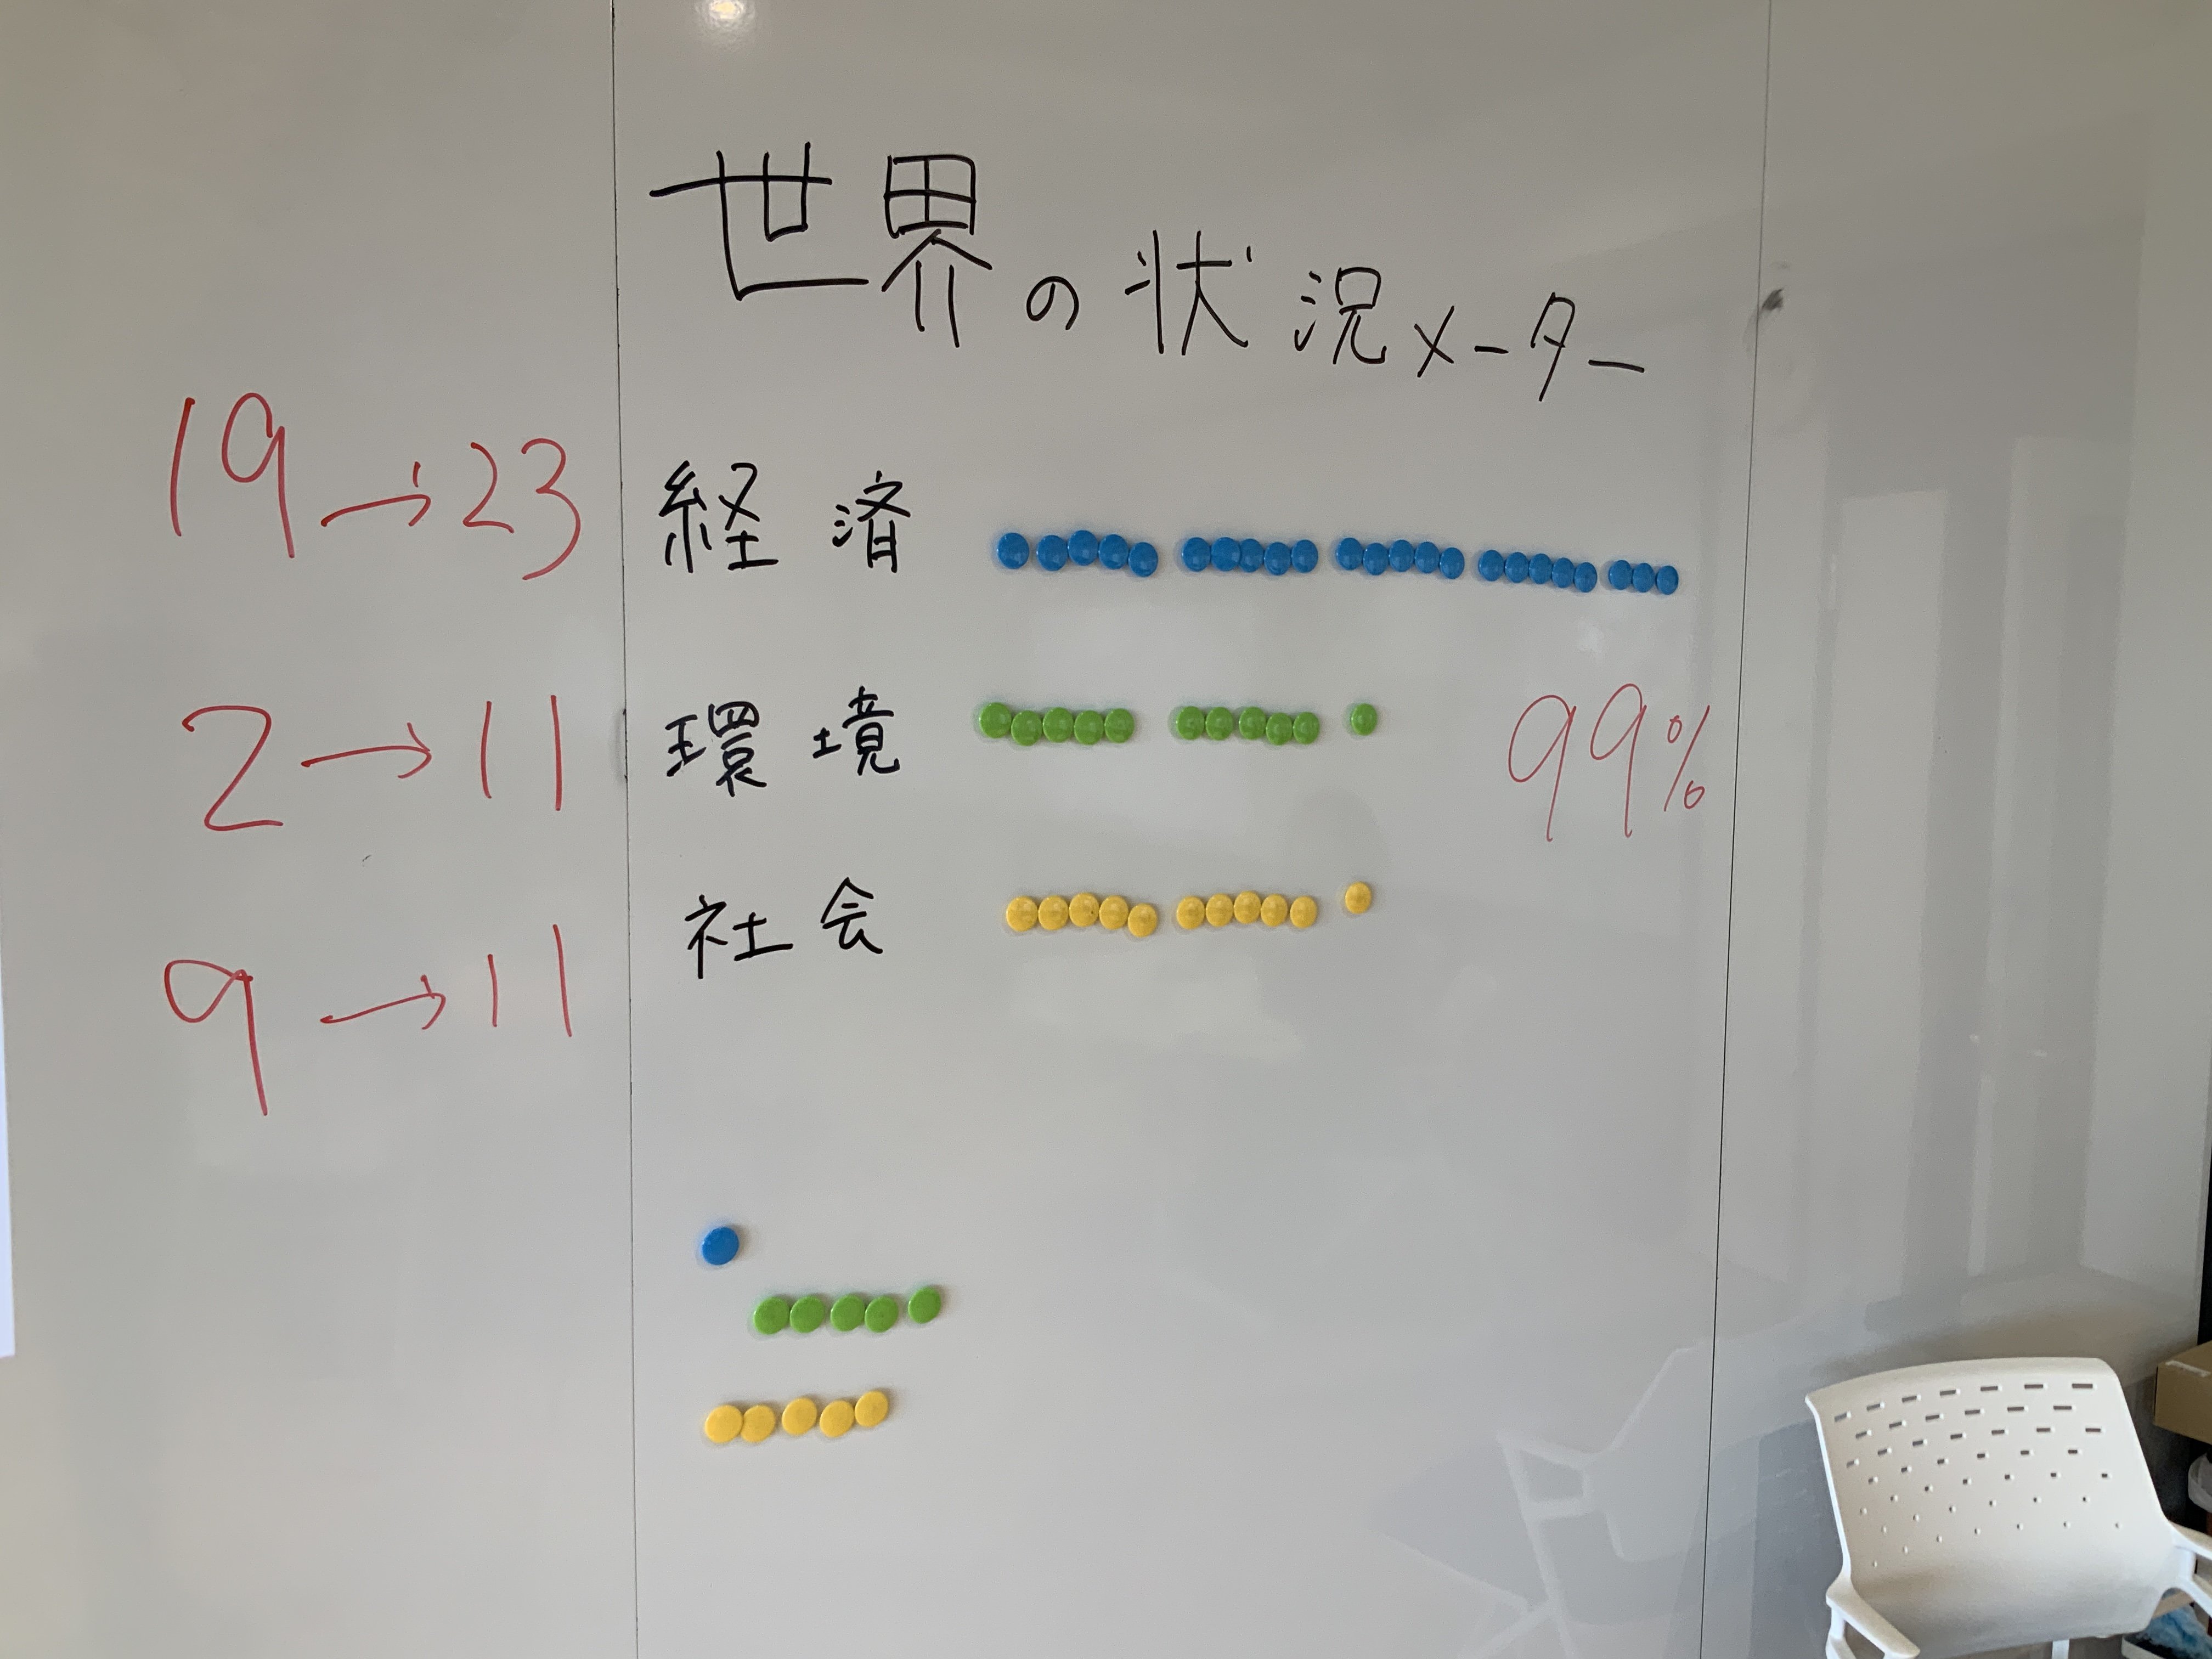 世界の状況メーター
19→23 経済
2→11 環境 99%
9→11 社会